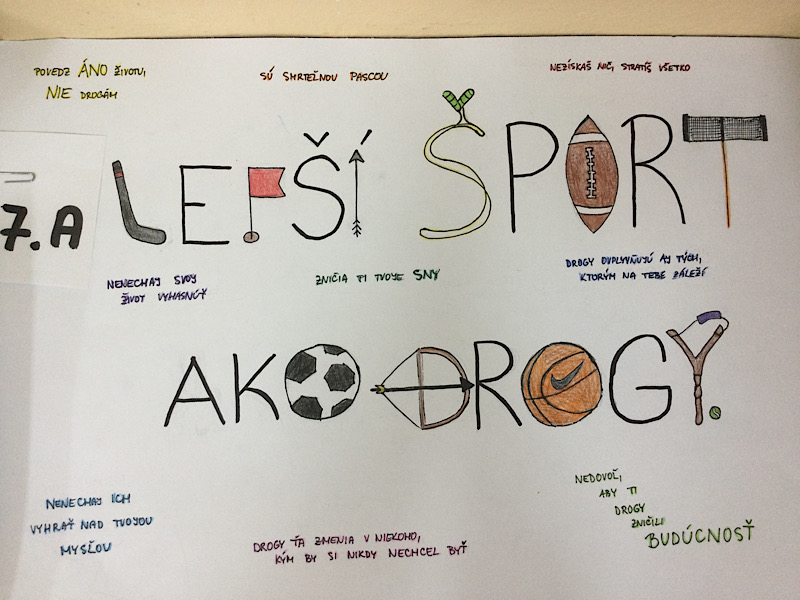 POVEDZ ÁNO ŽIVOTU,
NIE DROGÁM
SÚ SMRTEĽNOU PASCOU
NEZÍSKAŠ NIČ, STRATÍŠ VŠETKO
7.A
LEPŠÍ ŠPORT
NENECHAJ SVOJ
ŽIVOT VYHASNÚŤ
ZNIČIA TI TVOJE SNY
DROGY OVPLYVŇUJÚ AJ TÝCH,
KTORÝM NA TEBE ZÁLEŽÍ
AKO DROGY.
NENECHAJ ICH
VYHRAŤ NAD TVOJOU
MYSĽOU
DROGY ŤA ZMENIA V NIEKOHO,
KÝM BY SI NIKDY NECHCEL BYŤ
NEDOVOĽ,
ABY TI
DROGY
ZNIČILI
BUDÚCNOSŤ